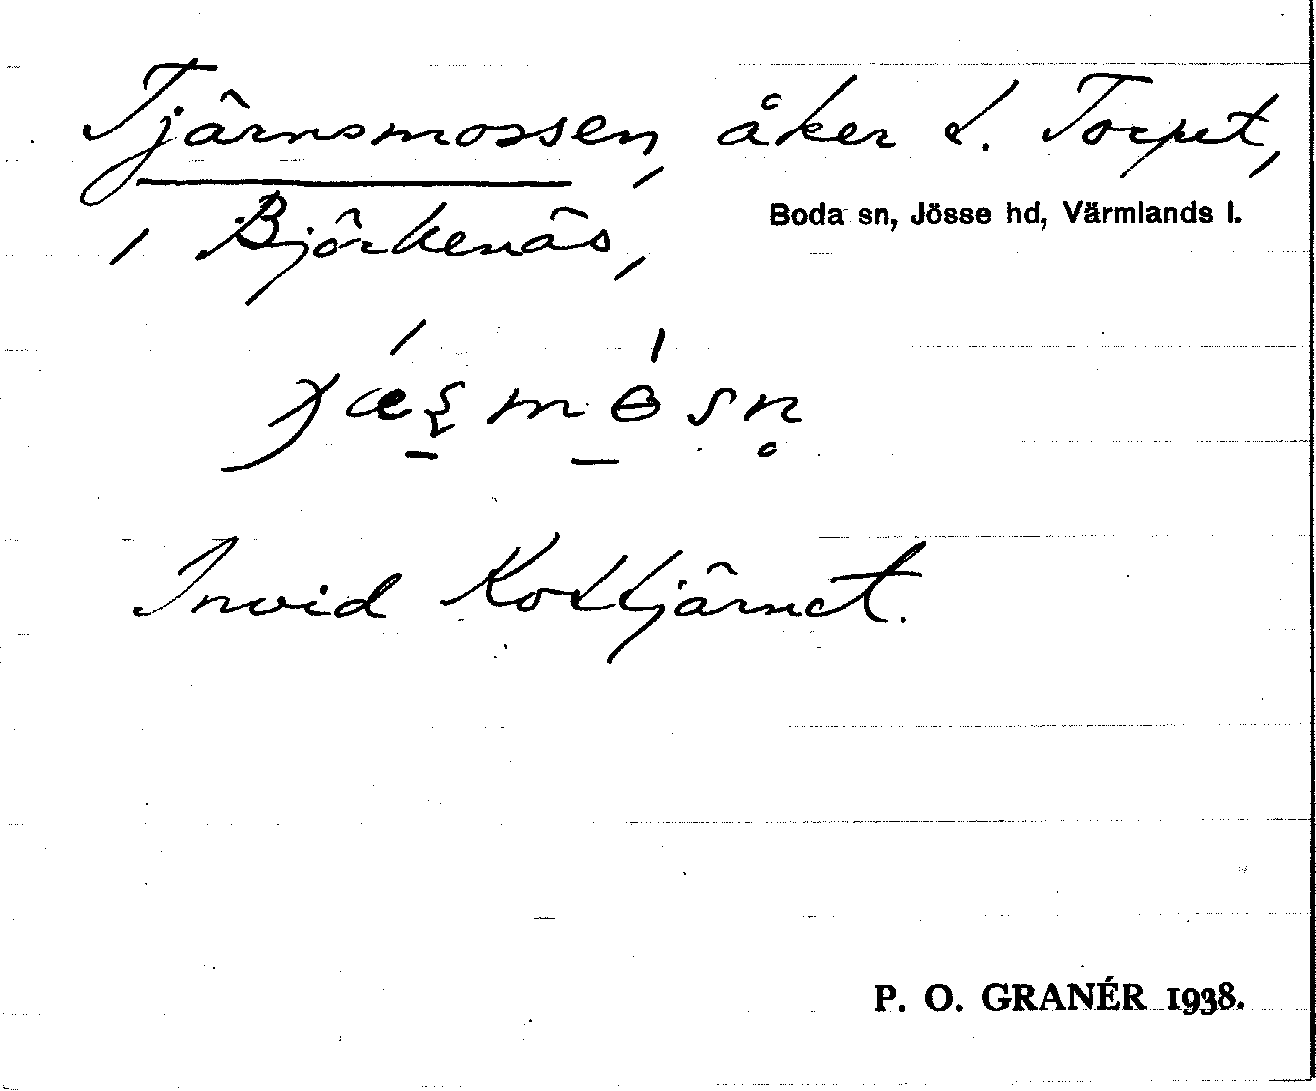 Tjärnsmossen, åker L. Torpet,
Boda sn, Jösse hd, Värmlands l.
i Björkenäs,
Invid Kottjärnet.
P. O. GRANÉR 1938.